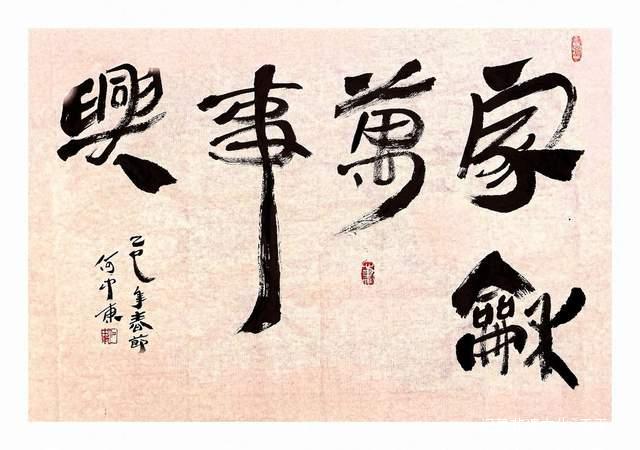 家龢
萬
事
興
乙巳年春節
何中東